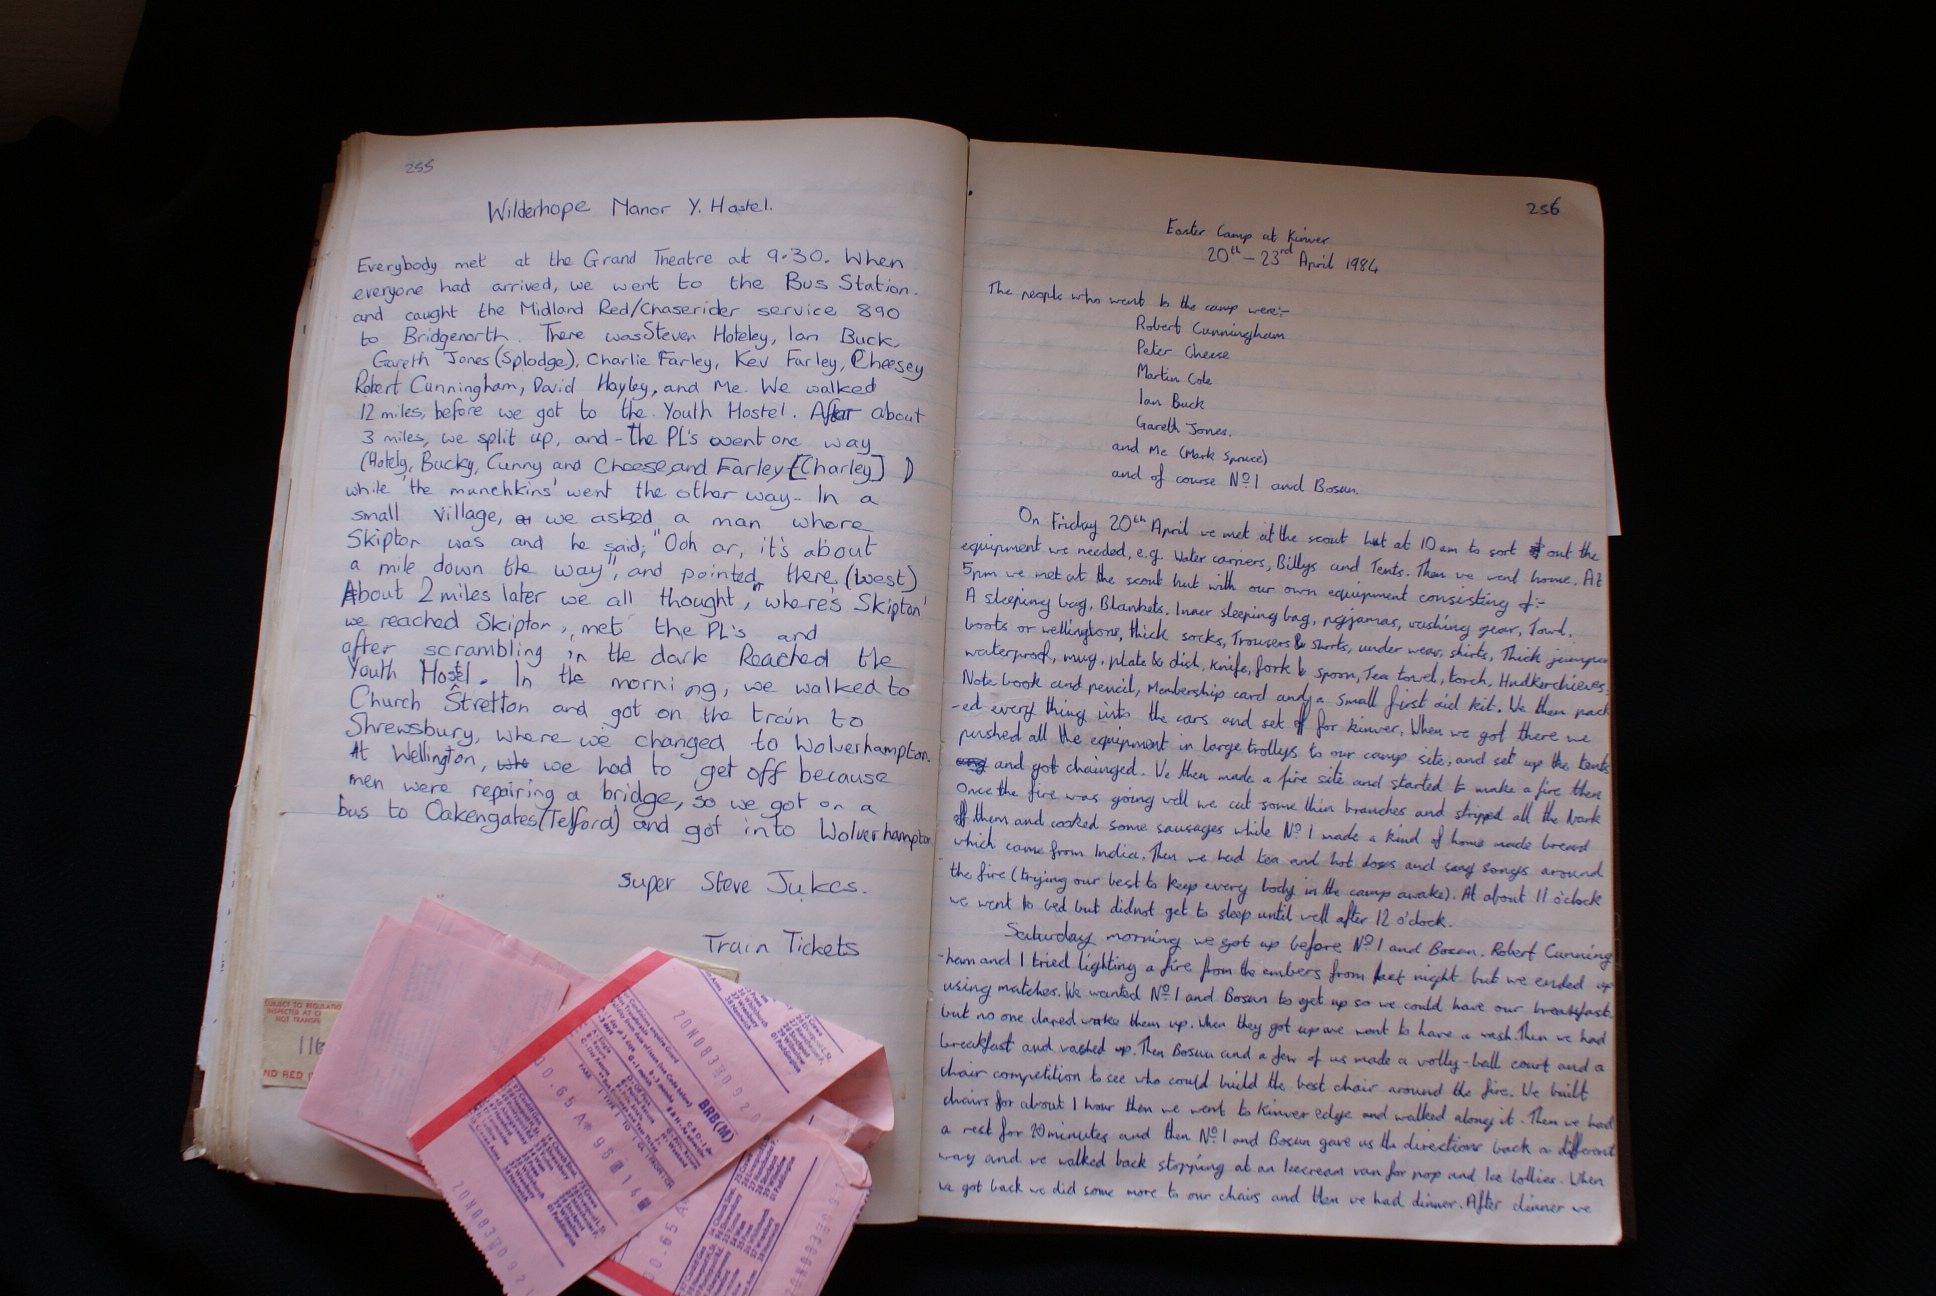 255
Wilderhope Manor Y. Hostel.
Everybody met at the Grand Theatre at 9.30. When
everyone had arrived, we went to the Bus Station.
and caught the Midland Red/Chaserider service 890
to Bridgenorth. There was Steven Hoteley, Ian Buck,
Gareth Jones (Splodge), Charlie Farley, Kev Farley, Cheesey
Robert Cunningham, David Hayley, and Me. We walked
12 miles, before we got to the Youth Hostel. After about
3 miles, we split up, and - the PL's went one way
(Hotely, Bucky, Cunny and Cheese and Farley [Charley] )
while 'the munchkins' went the other way - In a
small village, we asked a man where
Skipton was and he said, "Ooh ar, it's about
a mile down the way", and pointed there (west)
About 2 miles later we all thought, 'where's Skipton'
we reached Skipton, met the PL's and
after scrambling in the dark Reached the
Youth Hostel. In the morning, we walked to
Church Stretton and got on the train to
Shrewsbury, where we changed to Wolverhampton.
At Wellington, we had to get off because
men were repairing a bridge, so we got on a
bus to Oakengates (Telford) and got into Wolverhampton
Super Steve Jukes.
Train Tickets
SUBJECT TO REGULATIO
INSPECTED AT
NOT TRANSFE
ND RED
BRB(M)
256
Easter Camp at Kinver
20th - 23rd April 1984
The people who went to the camp were:-
Robert Cunningham
Peter Cheese
Martin Cole
Ian Buck
Gareth Jones.
and Me (Mark Spruce)
and of course Nº1 and Bosun.
On Friday 20th April we met at the scout hut at 10am to sort out the
equipment we needed, e.g. Water carriers, Billys and Tents. Then we went home. At
5pm we met at the scout hut with our own equipment consisting of:-
A sleeping bag, Blankets, Inner sleeping bag, pyjamas, washing gear, Towl,
boots or wellingtons, thick socks, Trousers & shorts, under wear, shirts, Thick jumper
waterproof, mug, plate & dish, knife, fork & spoon, Tea towel, torch, Hndkerchieves,
Note book and pencil, Membership card and a small first aid kit. We then pack
-ed every thing into the cars and set off for kinver. When we got there we
pushed all the equipment in large trollys to our camp site, and set up the tents
and got chainged. We then made a fire site and started to make a fire then
once the fire was going well we cut some thin branches and stripped all the bark
off them and cooked some sausages while Nº1 made a kind of home made bread
which came from India. Then we had tea and hot dogs and sang songs around
the fire (trying our best to keep every body in the camp awake). At about 11 o'clock
we went to bed but didnot get to sleep until well after 12 o'clock.
Saturday morning we got up before Nº1 and Bosun. Robert Cunning
-ham and I tried lighting a fire from the embers from last night but we ended up
using matches. We wanted Nº1 and Bosun to get up so we could have our breakfast.
but no one dared wake them up. When they got up we went to have a wash. Then we had
breakfast and washed up. Then Bosun and a few of us made a volly-ball court and a
chair competition to see who could build the best chair around the fire. We built
chairs for about 1 hour then we went to Kinver edge and walked along it. Then we had
a rest for 20 minutes and then Nº1 and Bosun gave us the directions back a different
way and we walked back stopping at an Icecream van for pop and Ice lollies. When
we got back we did some more to our chairs and then we had dinner. After dinner we